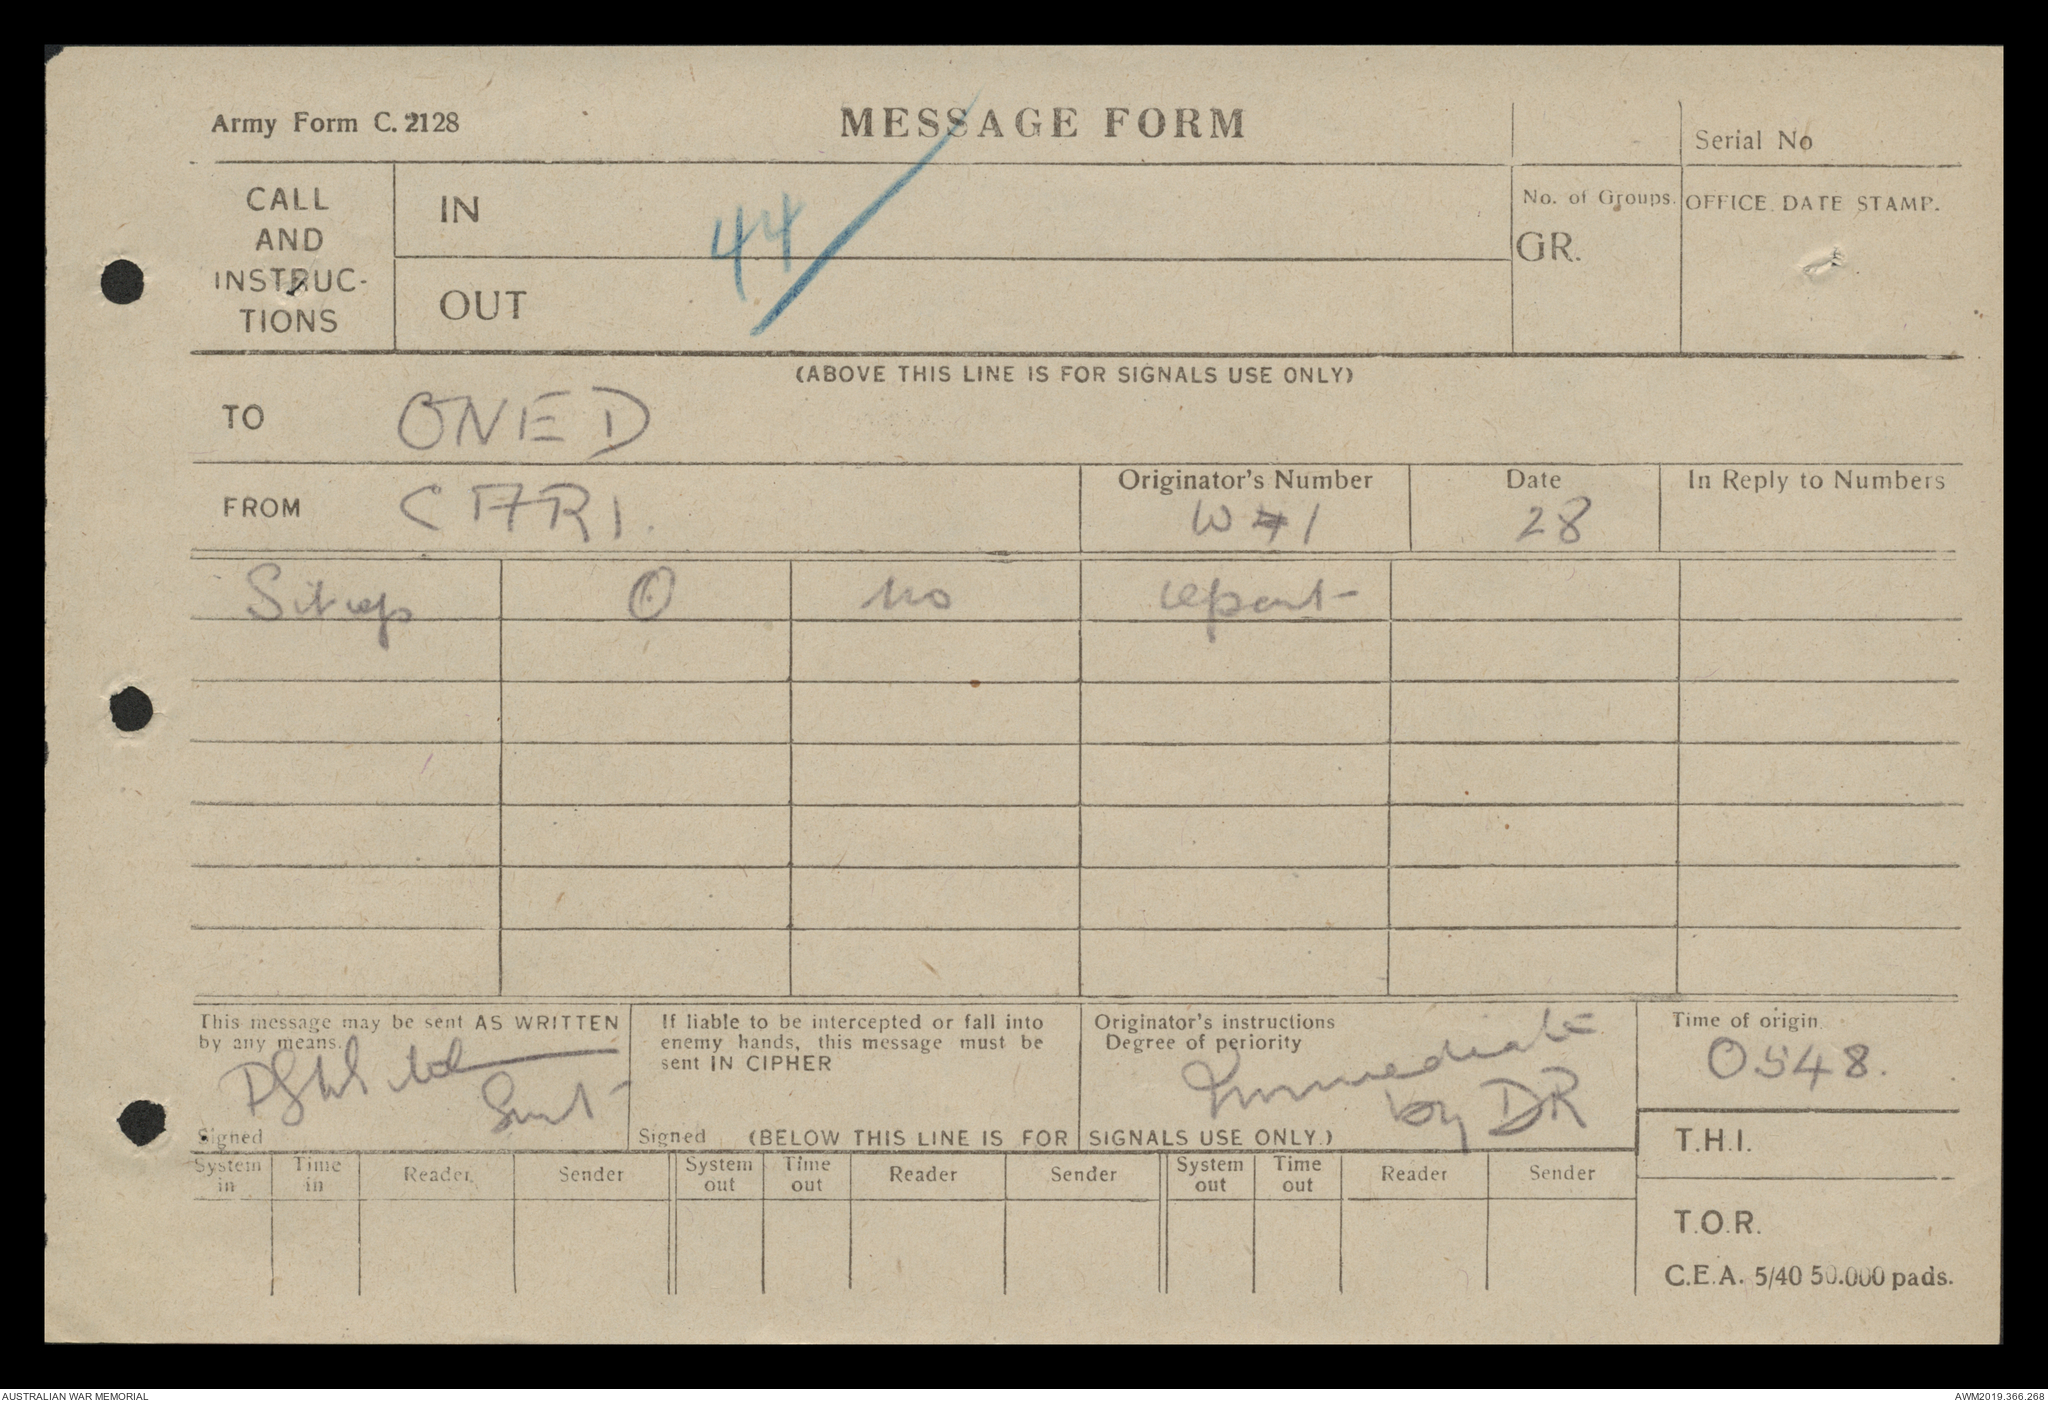 Army Form C. 2128
MESSAGE FORM
Serial No
CALL AND INSTRUC-TIONS
IN
44
OUT
No. of Groups.
GR.
OFFICE DATE STAMP.
(ABOVE THIS LINE IS FOR SIGNALS USE ONLY)
TO ONE D
FROM
Originator's Number
Date 28
In Reply to Numbers
Sitrep O no report
This message may be sent AS WRITTEN
by any means.
Signed
If liable to be intercepted or fall into
enemy hands, this message must be
sent IN CIPHER
Signed
Originator's instructions
Degree of periority
Immediate
by DR
Time of origin
0548.
(BELOW THIS LINE IS FOR SIGNALS USE ONLY.)
T.H.I.
System in Time in Reader Sender System out Time out Reader Sender System out Time out Reader Sender
T.O.R.
C.E.A. 5/40 50.000 pads.
AUSTRALIAN WAR MEMORIAL
AWM2019.366.268